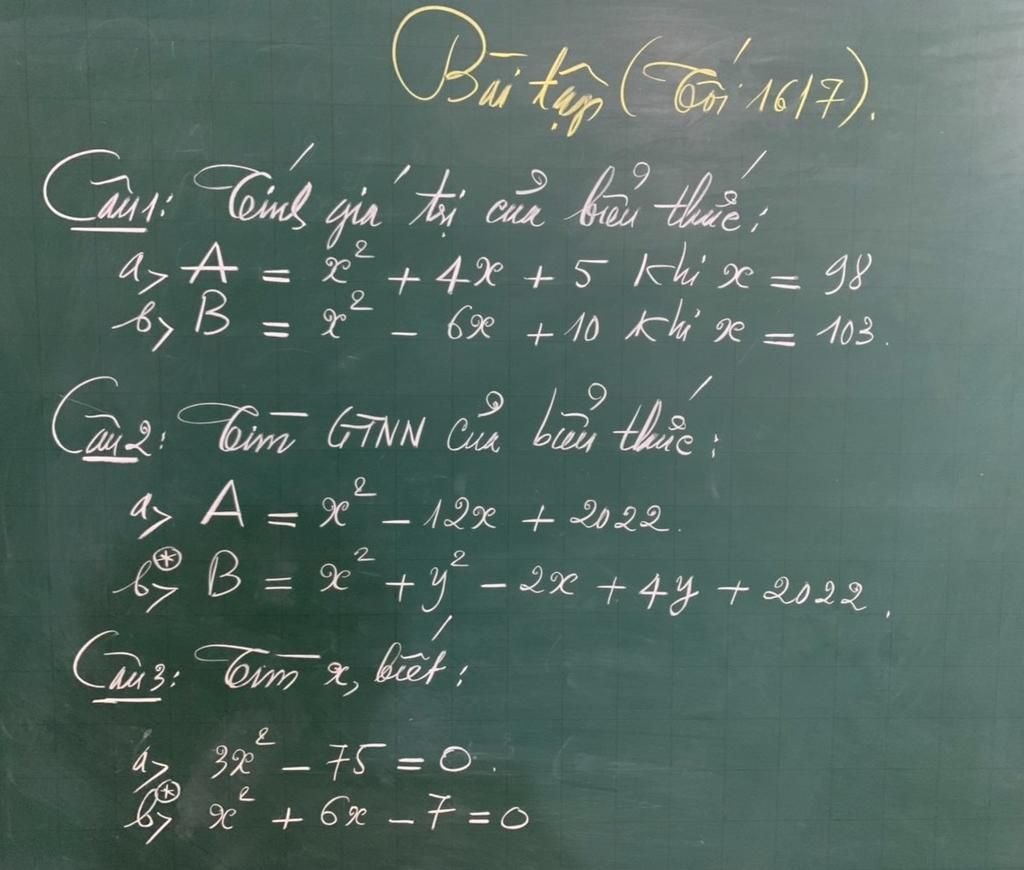 Bài tập (Tối 16/7).
Câu 1: Tính giá trị của biểu thức:
a> A = x² + 4x + 5 khi x = 98
b> B = x² - 6x + 10 khi x = 103.
Câu 2: Tìm GTNN của biểu thức:
a> A = x² - 12x + 2022.
b>⊛ B = x² + y² - 2x + 4y + 2022.
Câu 3: Tìm x, biết:
a> 3x² - 75 = 0.
b>⊛ x² + 6x - 7 = 0